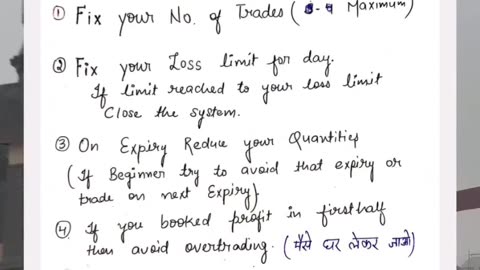 ① Fix your No. of Trades ( Maximum)
② Fix your Loss limit for day.
If limit reached to your loss limit
Close the system.
③ On Expiry Reduce your Quantities
(If Beginner try to avoid that expiry or
trade on next Expiry).
④ If you booked profit in firsthalf
then avoid overtrading. (पैसे घर लेकर जाओ)